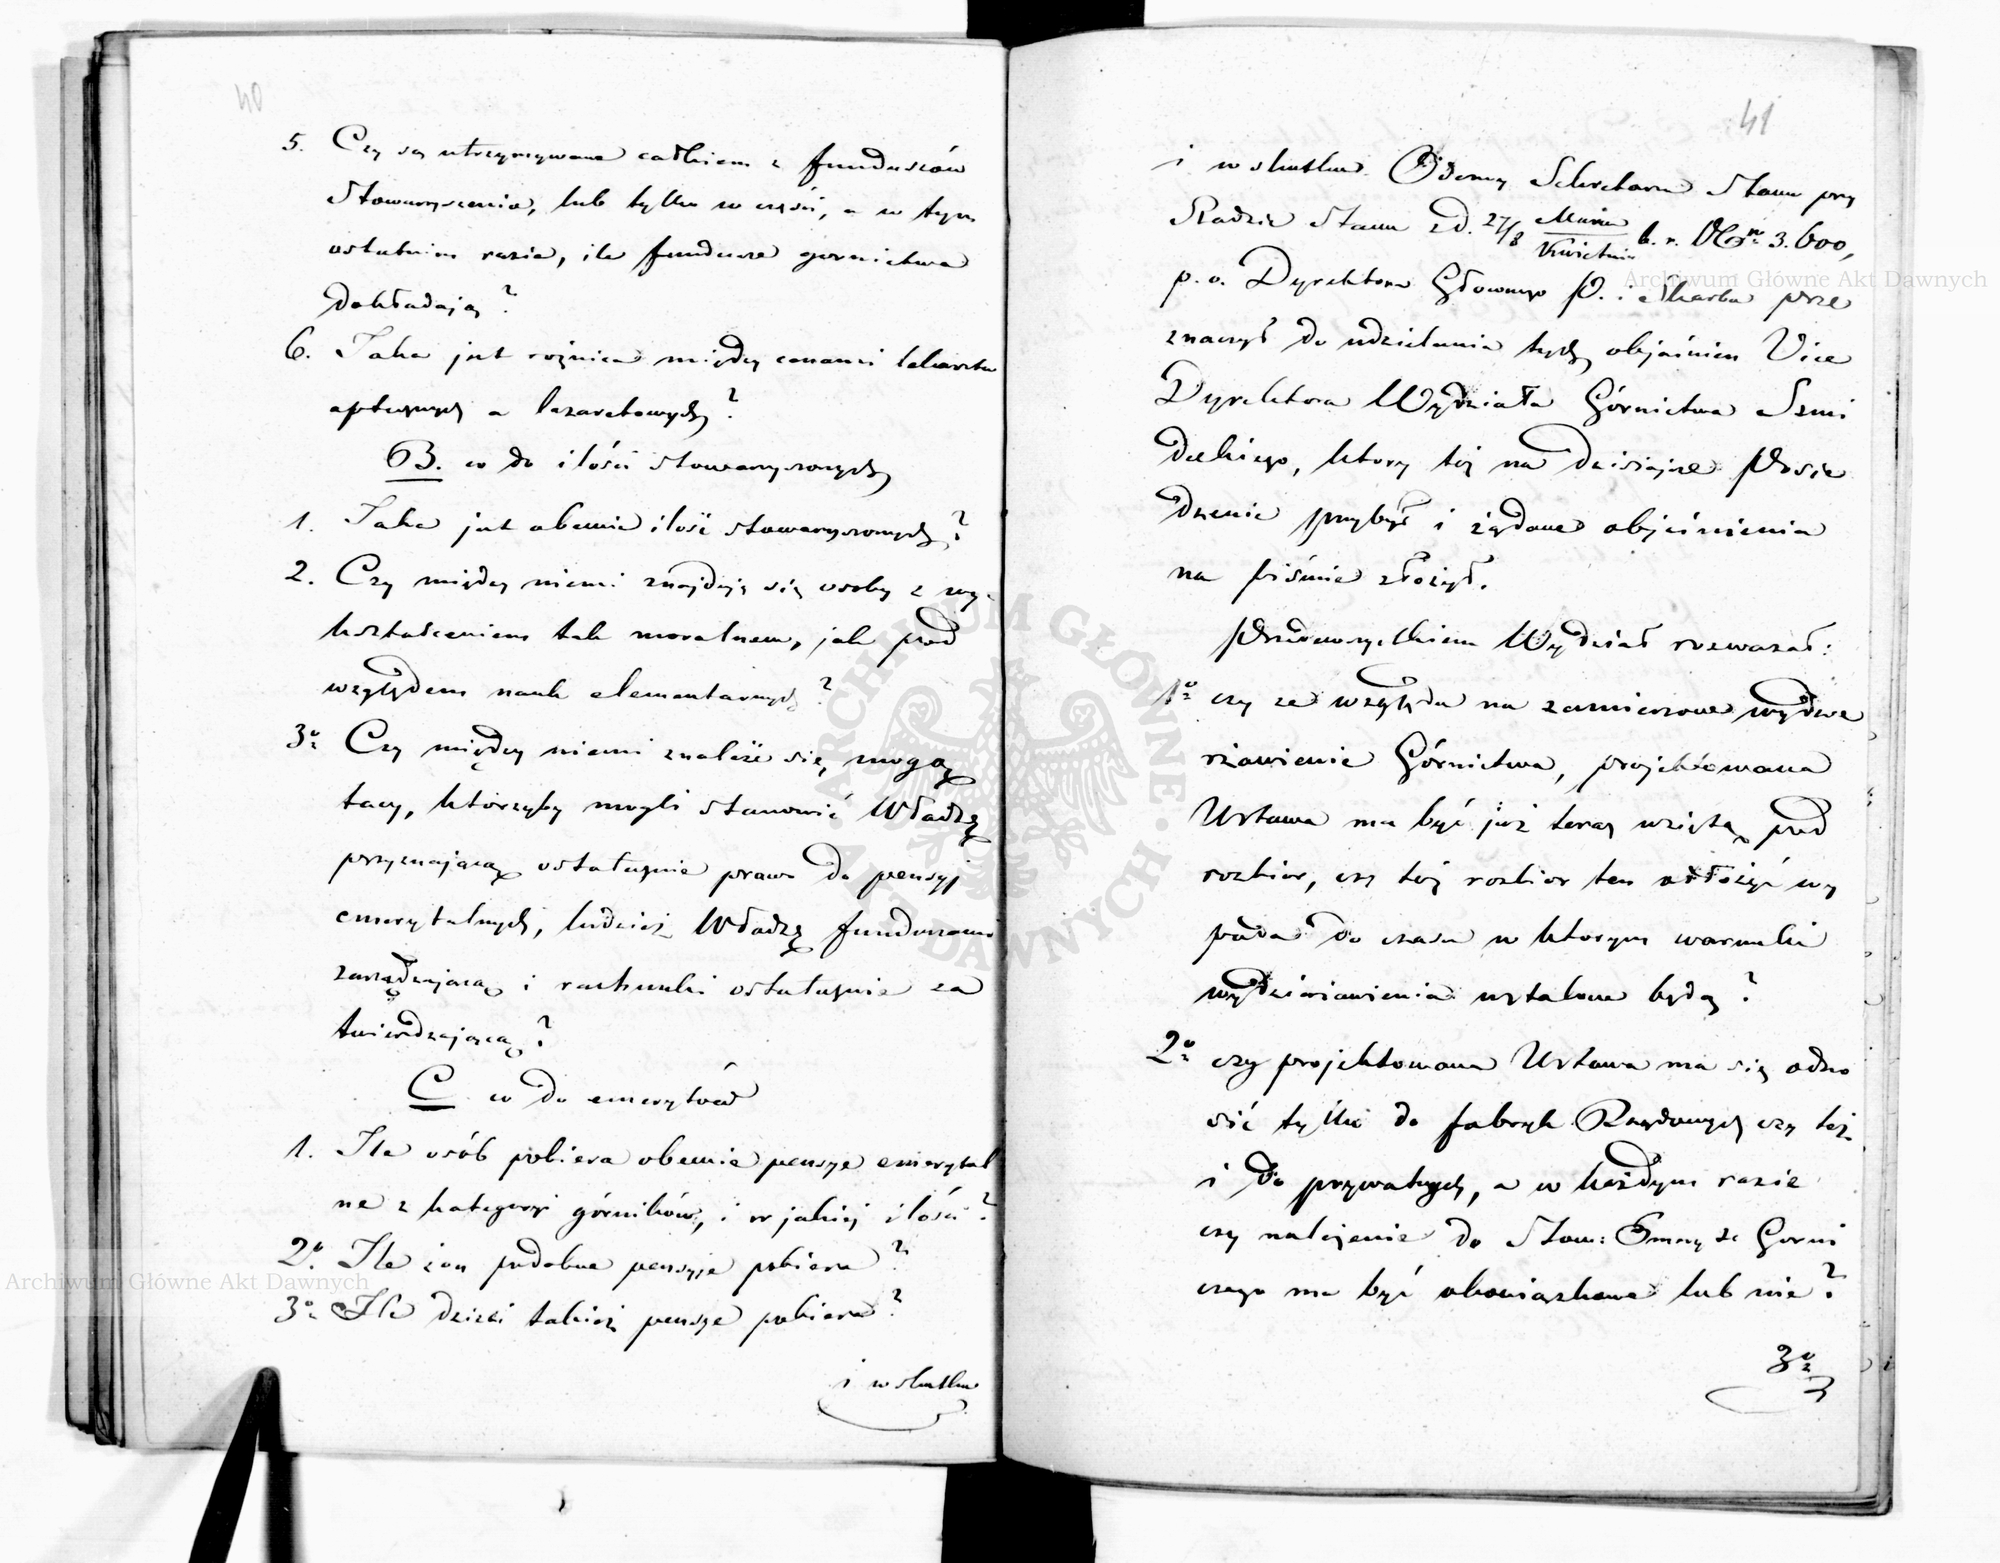 40
5. Czy są utrzymywane całkiem z funduszów
Stowarzyszenia, lub tylko w części, a w tym
ostatnim razie, ile fundusze gornictwa
dokładają?
6. Jaka jest rożnica między cenami lekarstw
aptecznych a lazaretowych?
B. co do ilości stowarzyszonych
1. Jaka jest obecnie ilość stowarzyszonych?
2. Czy między niemi znajdują się osoby z wy-
kształceniem tak moralnem, jak pod
względem nauk elementarnych?
3º Czy między niemi znaleźć się mogą
tacy, którzyby mogli stanowić Władzę
przyznającą ostatecznie prawo do pensyj
emerytalnych, tudzież Władzę funduszami
zarządzającą i rachunki ostatecznie za
twierdzającą?
C co do emerytów
1. Ile osób pobiera obecnie pensye emerytal
ne z kategoryi górników, i w jakiej ilości?
2º Ile żon podobne pensyje pobiera?
3º Ile dzieci takież pensye pobiera?
i w skutku
41
i w skutku Odezwy Sekretarza Stanu przy
Radzie Stanu z d. 27/8 Marca/Kwietnia b. r. Nr 3.600,
p. o. Dyrektora Głownego P. i Skarbu prze
znaczył do udzielenia tych objaśnien Vice
Dyrektora Wydziału Górnictwa Szmi
deckiego, ktory też na dzisiejsze Posie
dzenie przybył i żądane objaśnienia
na piśmie złożył.
Przedewszystkiem Wydział rozważał:
1º czy ze względu na zamierzone wydzie
rżawienie Górnictwa, projektowana
Ustawa ma być już teraz wziętą pod
rozbior, czy też rozbior ten odłożyć wy
pada do czasu w ktorym warunki
wydzierżawienia ustalone będą?
2º czy projektowana Ustawa ma się odno
sić tylko do fabryk Rządowych czy też
i do prywatnych, a w każdym razie
czy należenie do Stow: Emery
czego ma być obowiązkowe lub nie?
3º
Archiwum Główne Akt Dawnych
Archiwum Główne Akt Dawnych
ARCHIWUM GŁÓWNE · AKT DAWNYCH ·